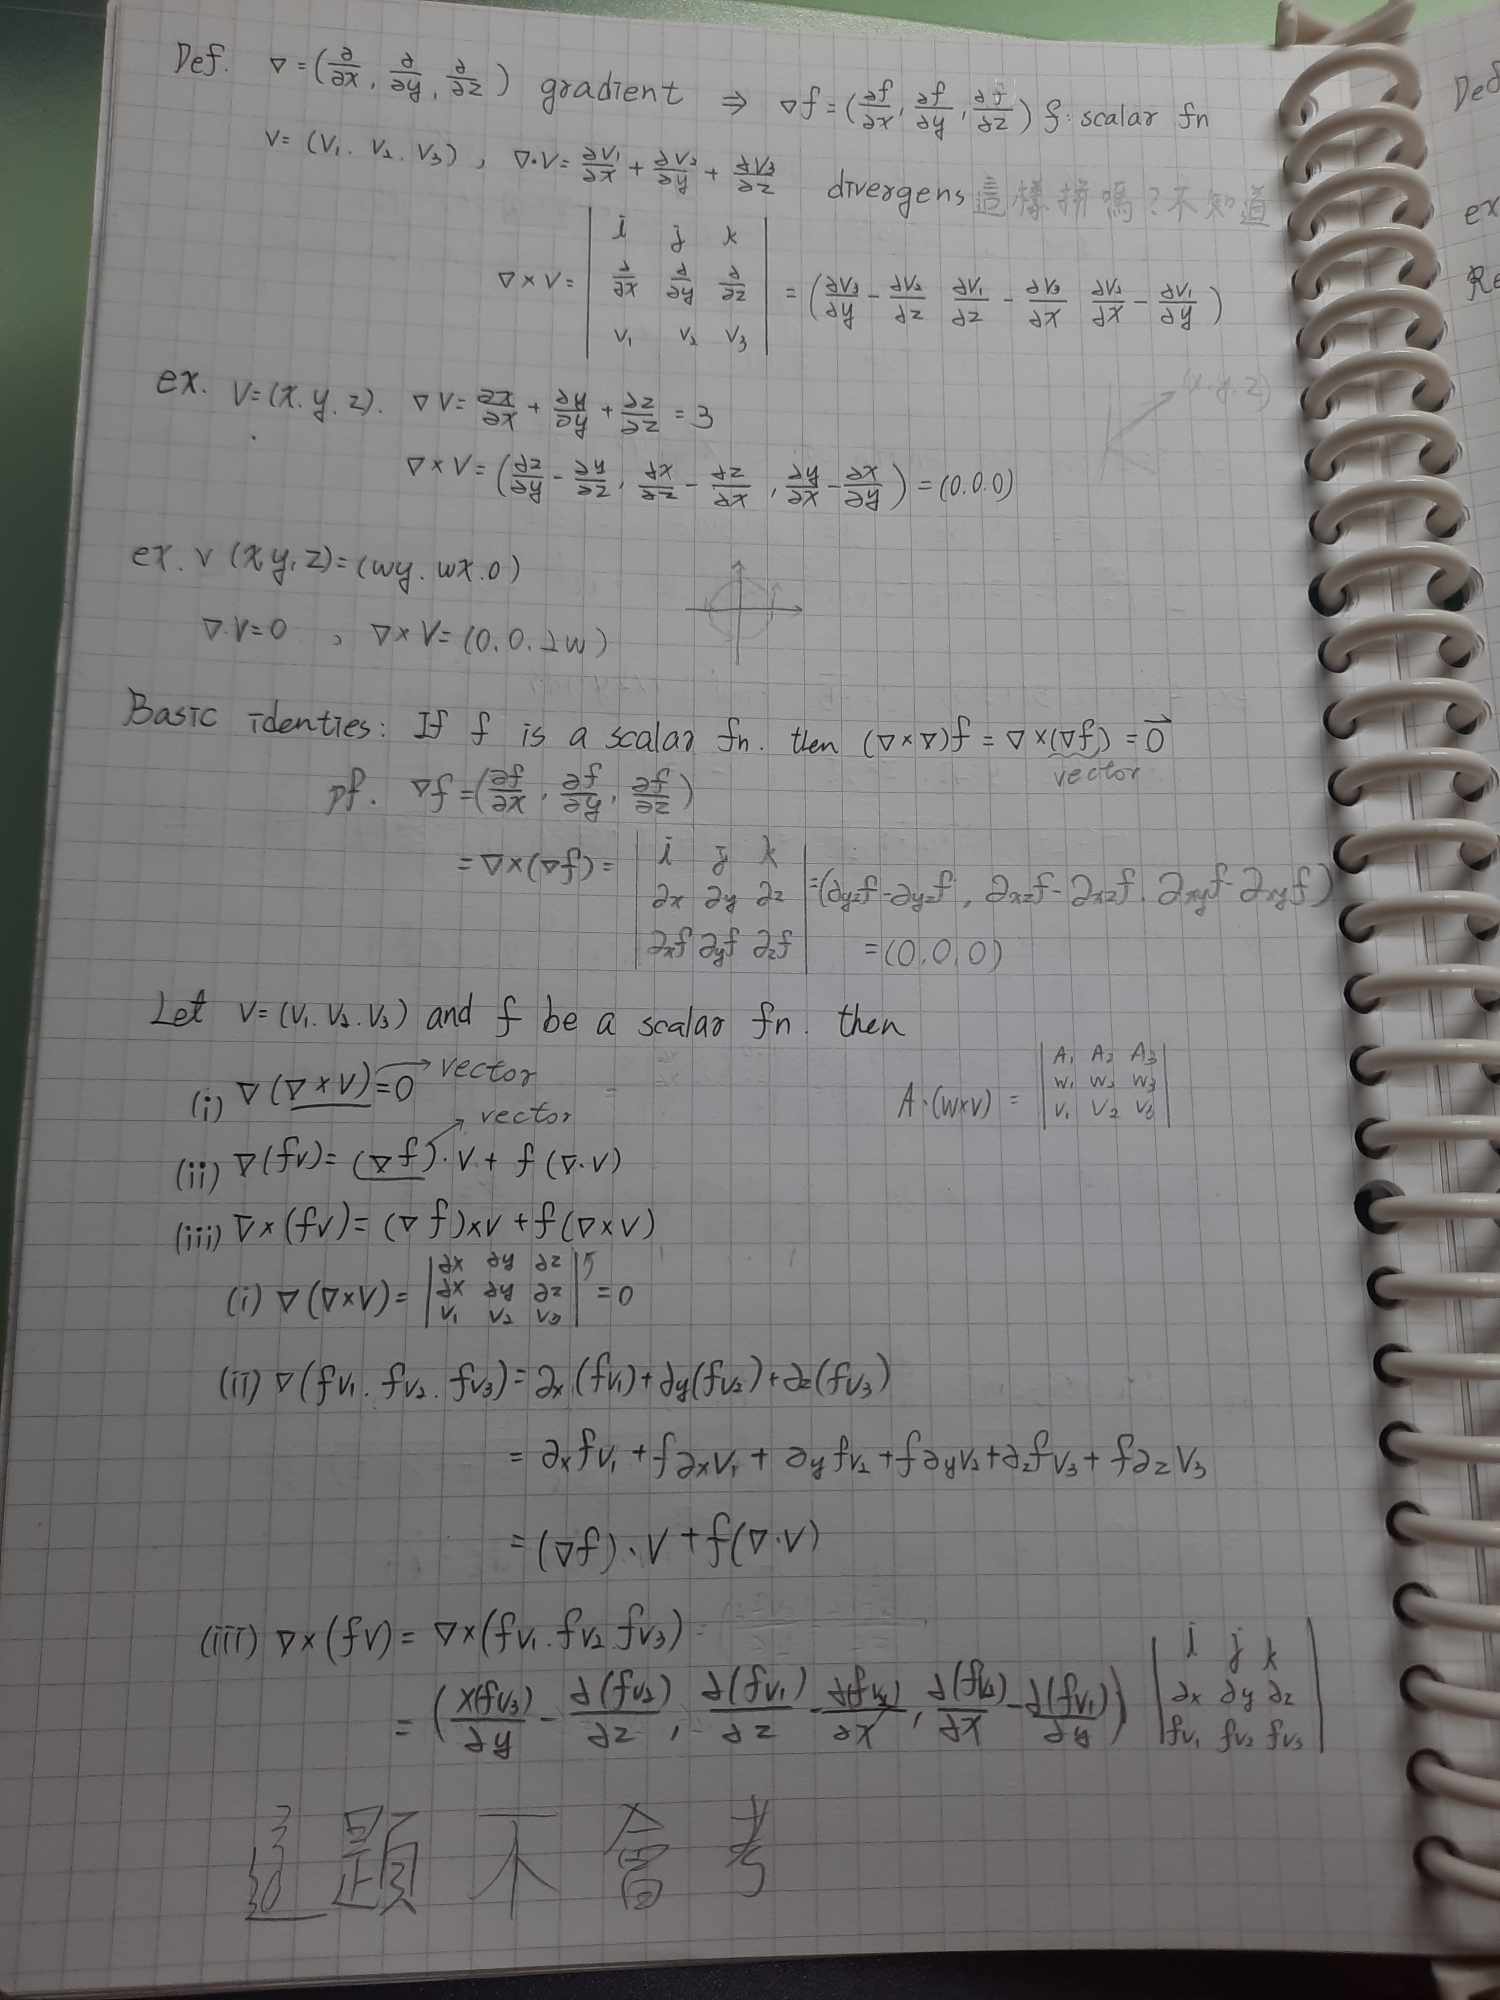 Def. ∇=(∂/∂x, ∂/∂y, ∂/∂z) gradient ⇒ ∇f=(∂f/∂x, ∂f/∂y, ∂f/∂z) f: scalar fn
V=(V₁. V₂. V₃), ∇·V=∂V₁/∂x+∂V₂/∂y+∂V₃/∂z divergens 這樣拼嗎?不知道
∇×V=| i j k ; ∂/∂x ∂/∂y ∂/∂z ; V₁ V₂ V₃ | = (∂V₃/∂y-∂V₂/∂z ∂V₁/∂z-∂V₃/∂x ∂V₂/∂x-∂V₁/∂y)
ex. V=(x.y.z). ∇V=∂x/∂x+∂y/∂y+∂z/∂z=3
(x.y.z)
∇×V=(∂z/∂y-∂y/∂z, ∂x/∂z-∂z/∂x, ∂y/∂x-∂x/∂y)=(0.0.0)
ex. v(x y, z)=(wy. wx.0)
∇.V=0 , ∇×V=(0.0.2w)
Basic identies: If f is a scalar fn. then (∇×∇)f=∇×(∇f)=0⃗
vector
pf. ∇f=(∂f/∂x, ∂f/∂y, ∂f/∂z)
=∇×(∇f)=| i j k ; ∂x ∂y ∂z ; ∂xf ∂yf ∂zf |=(∂yzf-∂yzf, ∂xzf-∂xzf. ∂xyf-∂xyf)
=(0.0.0)
Let V=(V₁.V₂.V₃) and f be a scalar fn. then
(i) ∇(∇×V)=0 → vector
A·(w×v) = | A₁ A₂ A₃ ; w₁ w₂ w₃ ; v₁ v₂ v₃ |
vector
(ii) ∇(fv)=(∇f)·V+f(∇·V)
(iii) ∇×(fv)=(∇f)×V+f(∇×V)
(i) ∇(∇×V)=| ∂x ∂y ∂z ; ∂x ∂y ∂z ; V₁ V₂ V₃ |=0
(ii) ∇(fv₁. fv₂. fv₃)=∂x(fv₁)+∂y(fv₂)+∂z(fv₃)
=∂xfv₁+f∂xV₁+∂yfv₂+f∂yV₂+∂zfv₃+f∂zV₃
=(∇f)·V+f(∇·V)
(iii) ∇×(fv)=∇×(fv₁.fv₂ fv₃)
=(x(fv₃)/∂y-∂(fv₂)/∂z, ∂(fv₁)/∂z-∂(fv₃)/∂x, ∂(fv₂)/∂x-∂(fv₁)/∂y) | i j k ; ∂x ∂y ∂z ; fv₁ fv₂ fv₃ |
這題不會考
Def
ex
Re